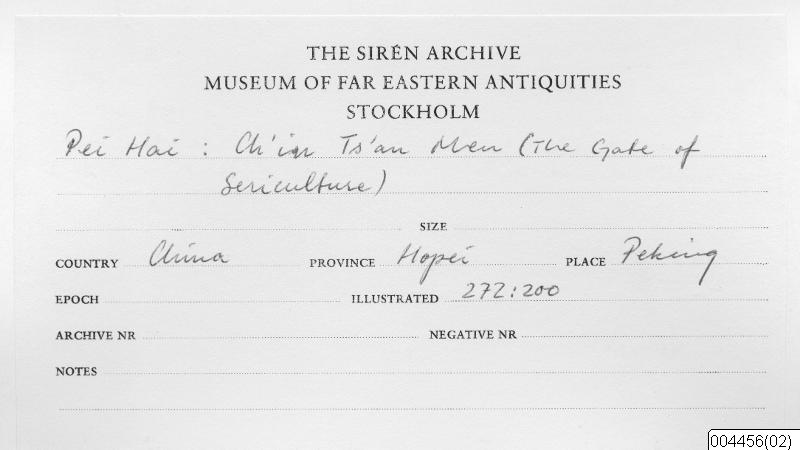 THE SIRÉN ARCHIVE
MUSEUM OF FAR EASTERN ANTIQUITIES
STOCKHOLM
Pei Hai : Ch'in Ts'an Men (The Gate of
Sericulture)
SIZE
COUNTRY China PROVINCE Hopei PLACE Peking
EPOCH ILLUSTRATED 272:200
ARCHIVE NR NEGATIVE NR
NOTES
004456(02)